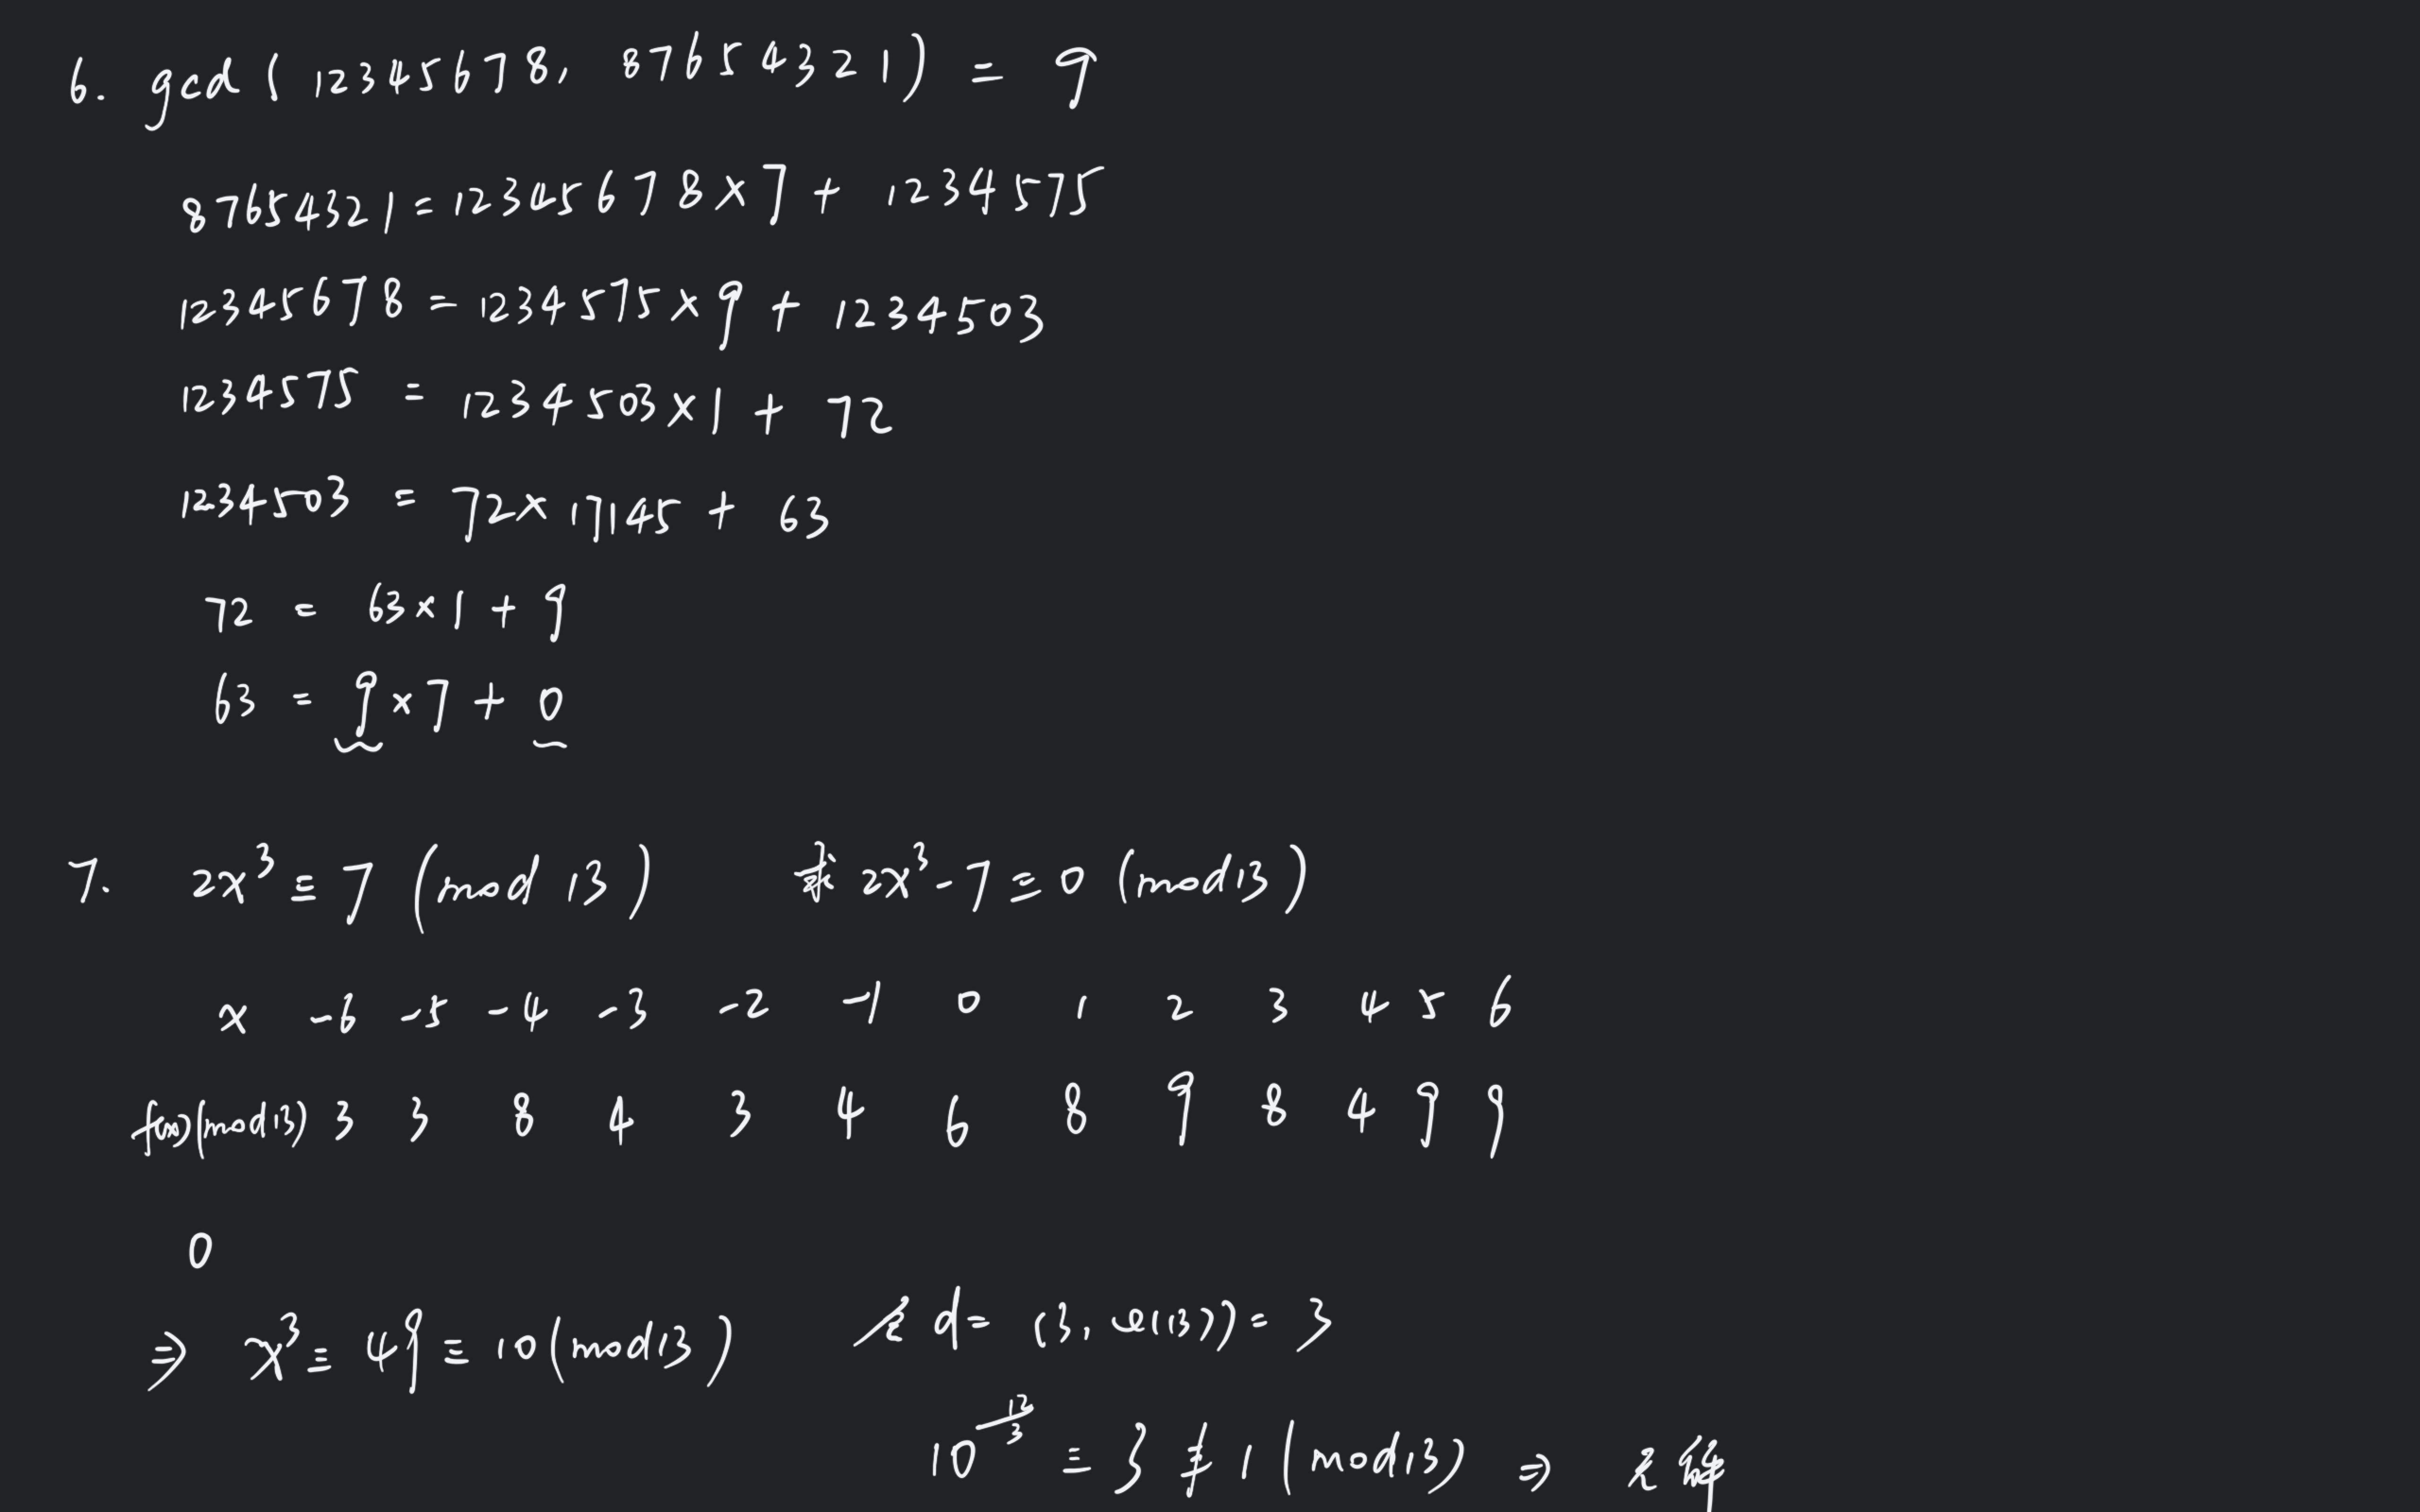 6. gcd(12345678, 87654321) = 9
87654321 = 12345678 × 7 + 1234575
12345678 = 1234575 × 9 + 1234503
1234575 = 1234503 × 1 + 72
1234503 = 72 × 17145 + 63
72 = 63 × 1 + 9
63 = 9 × 7 + 0
7. 2x³ ≡ 7 (mod 13) 求 2x³ - 7 ≡ 0 (mod 13)
x -6 -5 -4 -3 -2 -1 0 1 2 3 4 5 6
f(x)(mod 13) 3 3 8 4 3 4 6 8 9 8 4 9 9
0
⇒ x³ ≡ 49 ≡ 10 (mod 13) d = (3, φ(13)) = 3
10^(12/3) ≡ 3 ≢ 1 (mod 13) ⇒ 无解